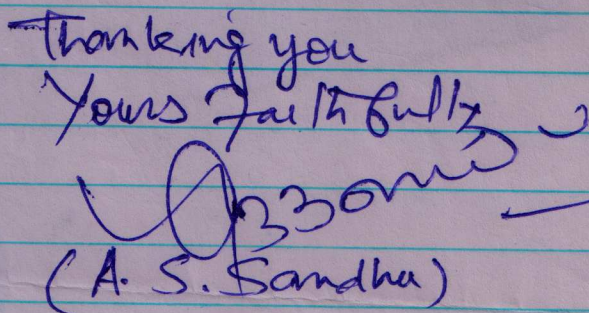 Thanking you
Yours Faithfully
(A. S. Sandhu)